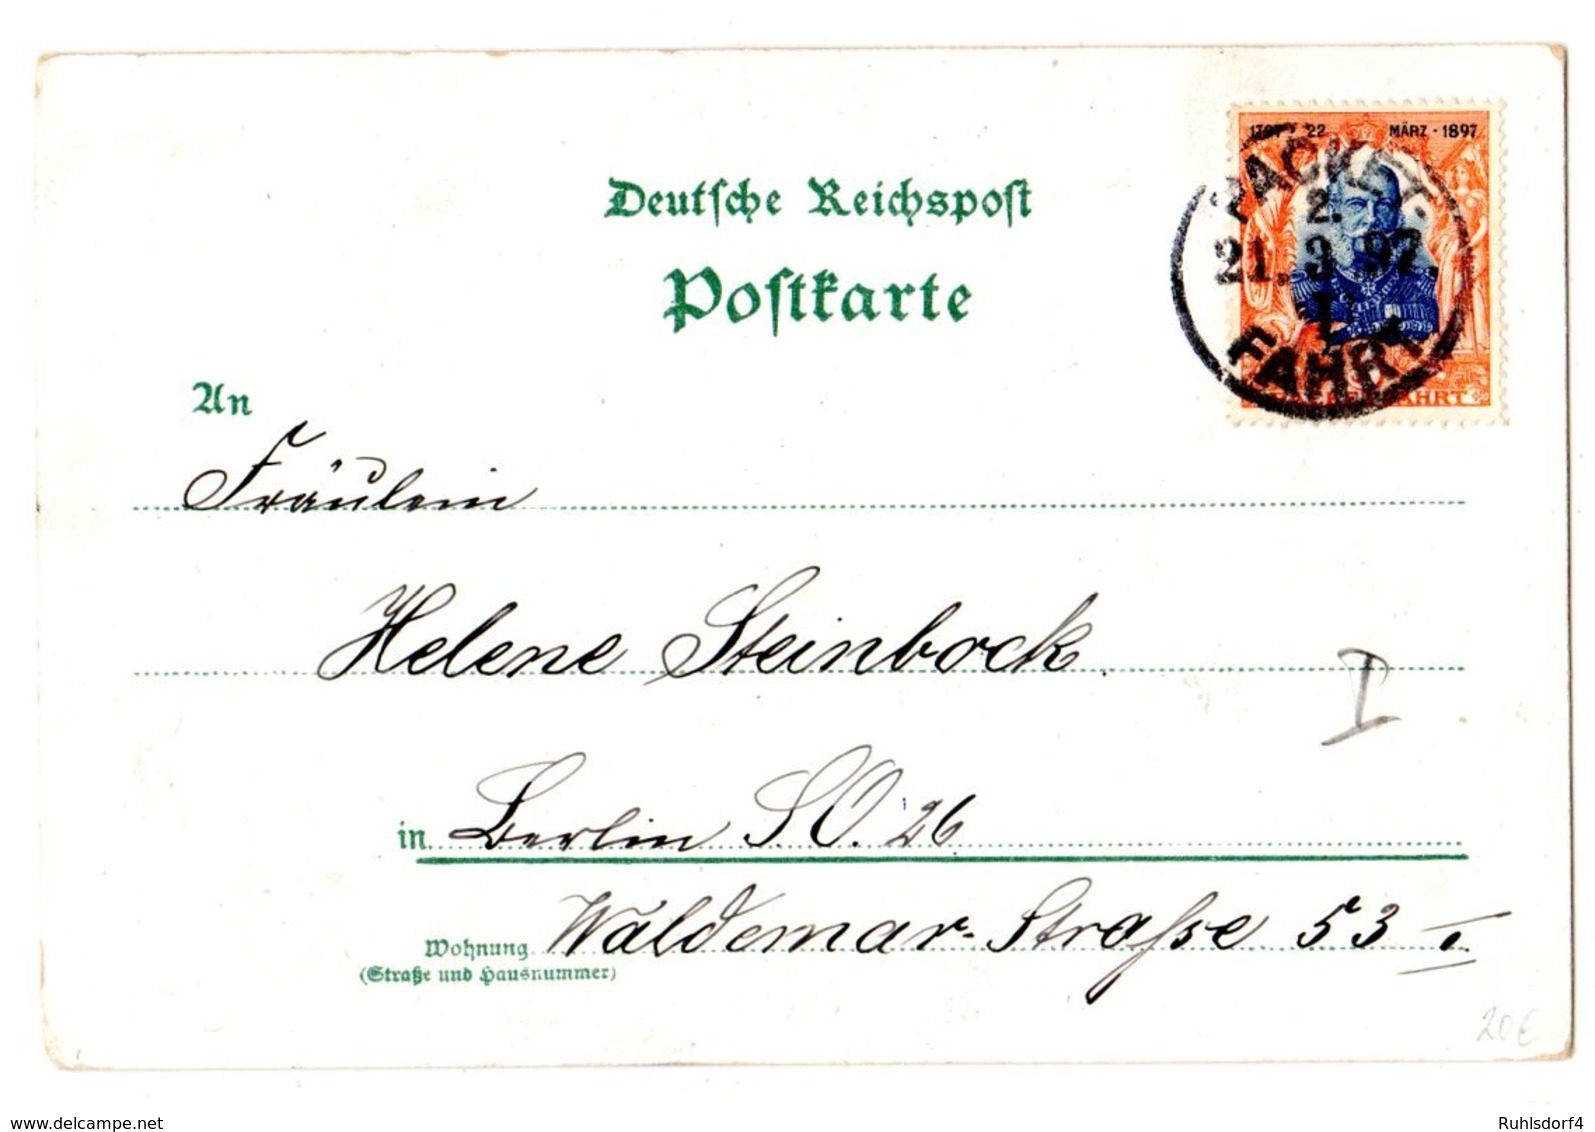 1797 22 MÄRZ · 1897
PACKET-
2.
21. 3. 97.
FAHRT
Deutsche Reichspost
Postkarte
An
Fräulein
Helene Steinbock.
in Berlin S.O. 26
Wohnung Waldemar-Strasse 53 I.
(Straße und Hausnummer)
I
20€
www.delcampe.net
Ruhlsdorf4